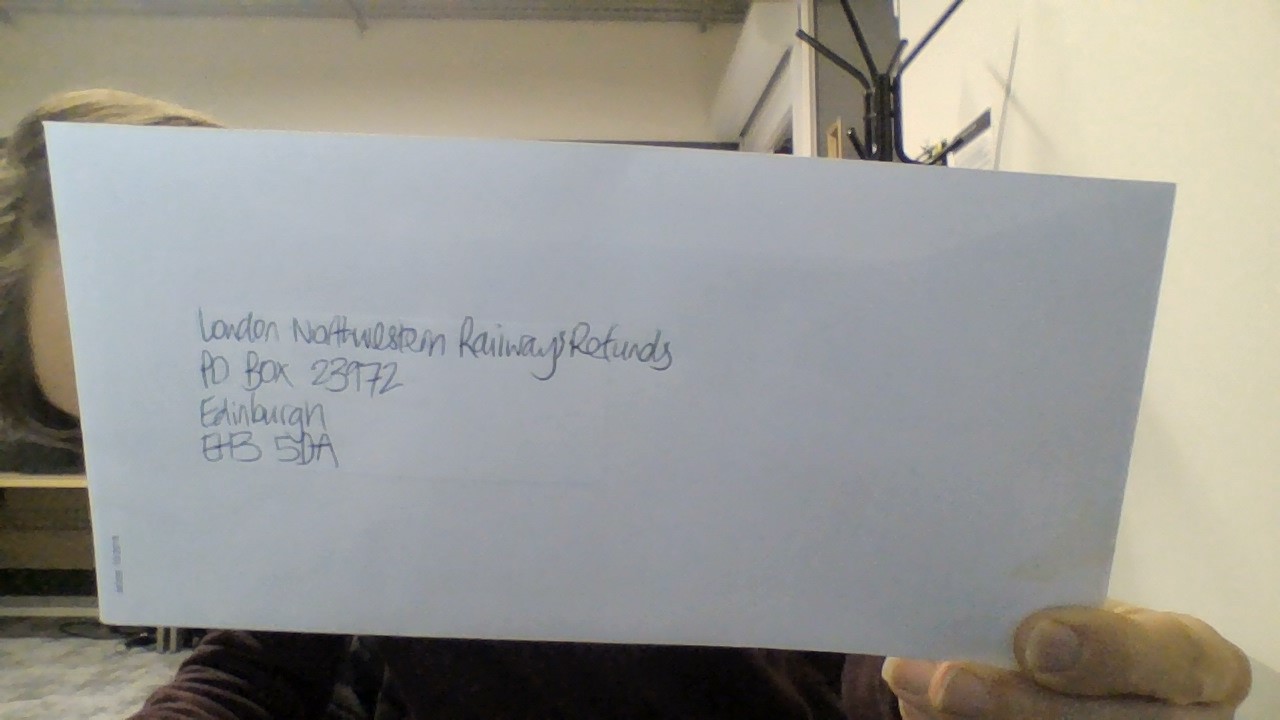 London Northwestern Railways Refunds
PO Box 23972
Edinburgh
EH3 5DA